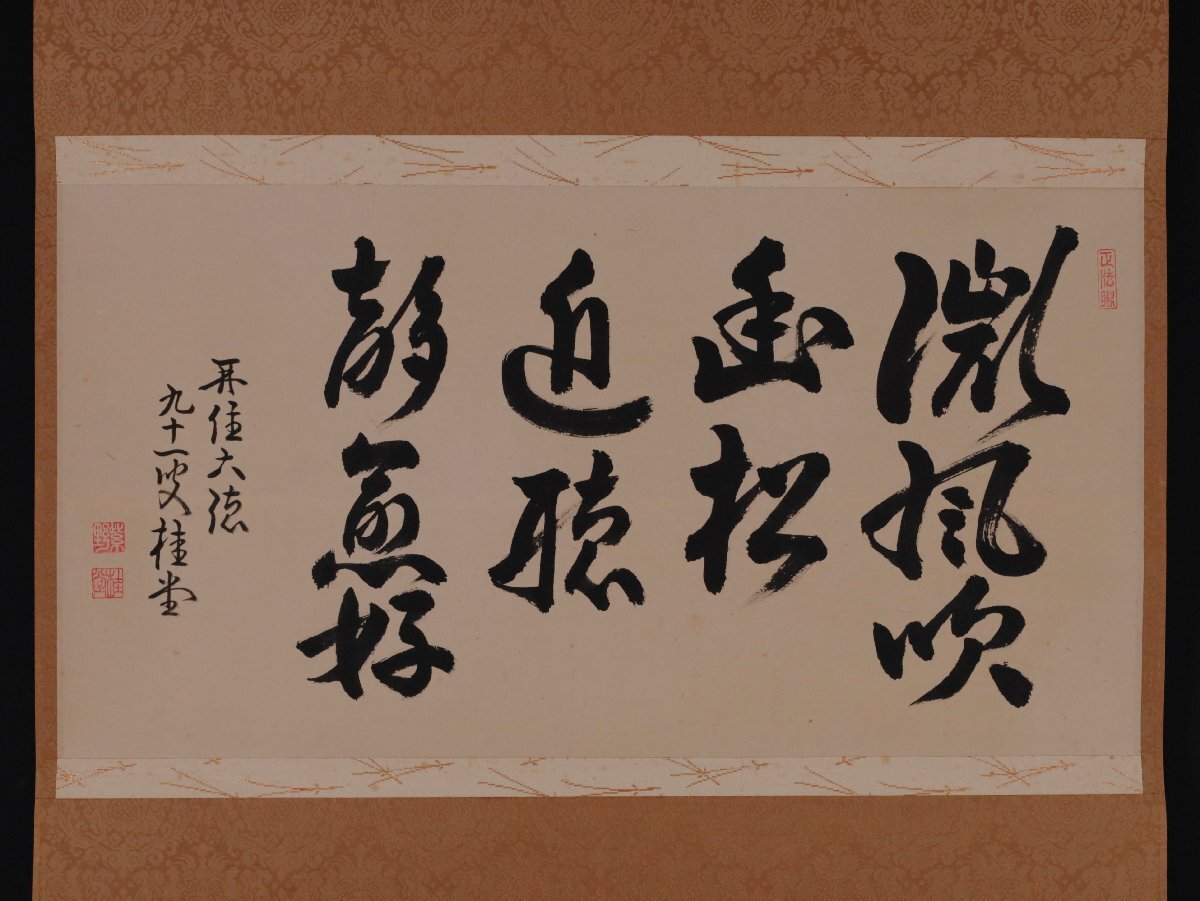 正法眼
微風吹
幽松
近聴
聲愈好
再住大徳
九十一叟桂堂
紫野
桂堂